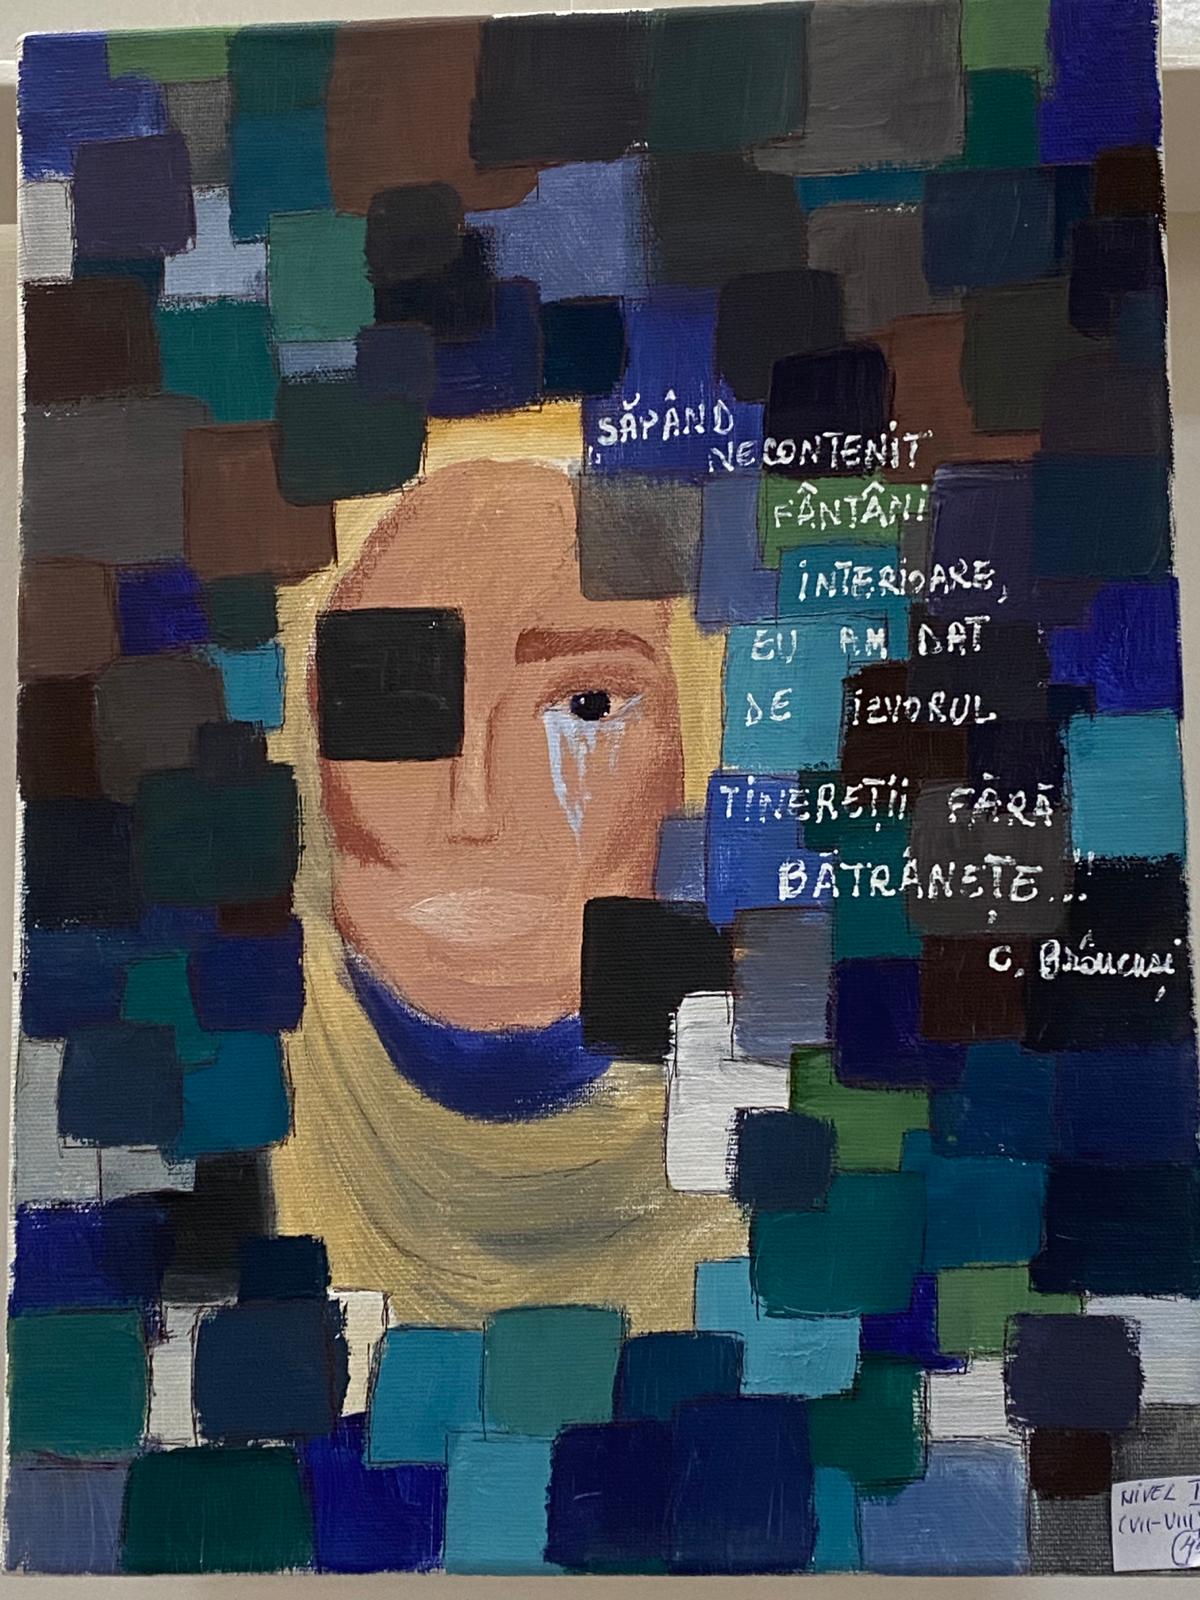 „SĂPÂND
NECONTENIT
FÂNTÂNI
INTERIOARE,
EU AM DAT
DE IZVORUL
TINEREȚII FĂRĂ
BĂTRÂNEȚE..."
C. Brâncuși
NIVEL I
(VII-VIII)